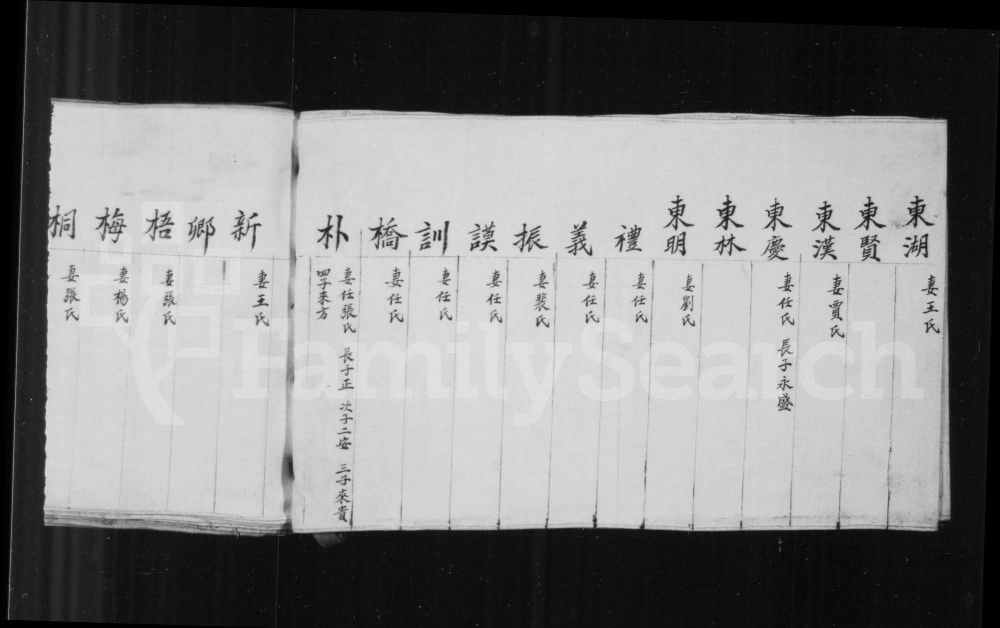 東湖
妻王氏
東賢
東漢
妻賈氏
東慶
妻任氏 長子永盛
東林
東明
妻劉氏
禮
妻任氏
義
妻任氏
振
妻裴氏
謨
妻任氏
訓
妻任氏
橋
妻任氏
朴
妻任張氏 長子正 次子二安 三子來貴
四子來方
新
妻王氏
鄉
梧
妻張氏
梅
妻楊氏
桐
妻張氏
FamilySearch